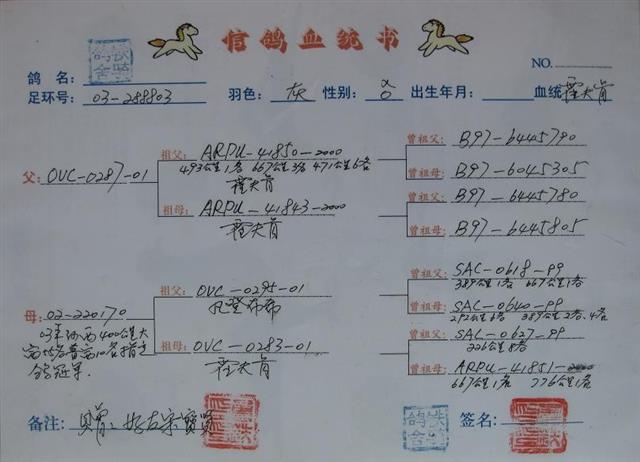 信鸽血统书
NO.
鸽名:
足环号: 03-288803 羽色: 灰 性别: 出生年月: 血统 霍夫肯
父: OVC-0287-01
祖父: ARPU-41850-2000
493公里1名 667公里3名 471公里6名
霍夫肯
祖母: ARPU-41843-2000
霍夫肯
曾祖父: B97-6445790
曾祖母: B97-6045305
曾祖父: B97-6445780
曾祖母: B97-6445805
母: 02-220170
03年 400公里大
名 10名指定
冠军.
祖父: OVC-0295-01
凡登布希
祖母: OVC-0283-01
霍夫肯
曾祖父: SAC-0618-99
389公里1名 667公里1名
曾祖母: SAC-0640-99
292公里6名 389公里2名.4名
曾祖父: SAC-0627-99
226公里8名
曾祖母: ARPU-41851-2000
667公里1名 776公里1名
备注: 赠: 好友宋宝贤
签名: